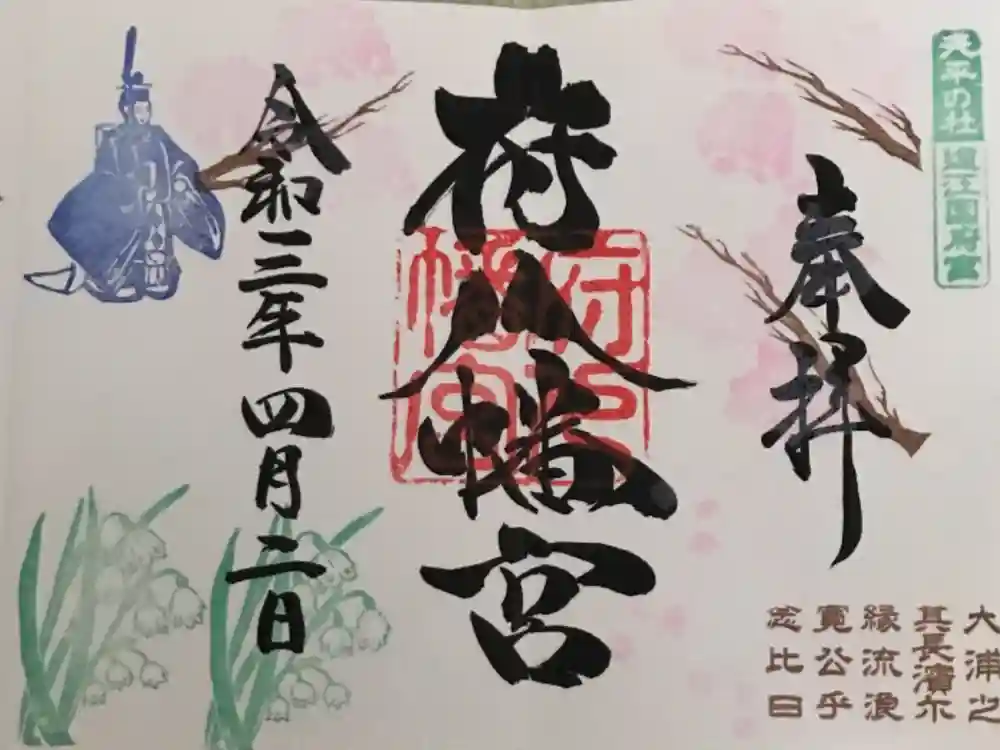 天平の社 遠江国府宮
奉拝
府八幡宮
府八
幡宮
令和三年四月二日
大浦之
其長濱尓
縁流浪
寛公乎
念比日